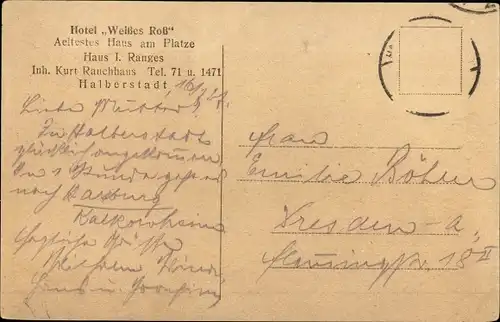 Hotel „Weißes Roß"
Aeltestes Haus am Platze
Haus I. Ranges
Inh. Kurt Rauchhaus Tel. 71 u. 1471
Halberstadt,
Liebe Mutter!
In Halberstadt
glücklich angekommen
In 1 Stunde geht es
nach Harburg
Herzliche Grüße
Hans u.
Frau
Emilie Böhm
Dresden-A.
18 II